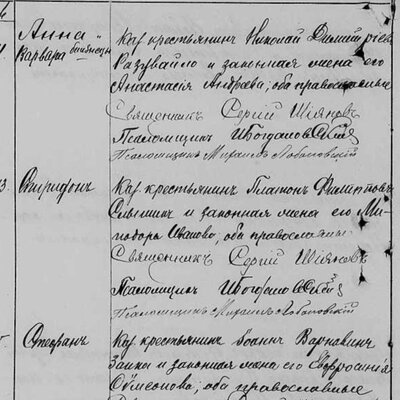 Анна и
Варвара близнецы
Каз. крестьянинъ Николай Димитріевъ
Разувайло и законная жена его
Анастасія Андреева; оба православные
Священникъ Сергій
Псаломщикъ
Псаломщикъ Михаилъ Лобановскій
Спиридонъ
Каз. крестьянинъ Платонъ Филипповъ
и законная жена его Ми-
нодора Иванова; оба православные
Священникъ Сергій
Псаломщикъ
Псаломщикъ Михаилъ Лобановскій
Стефанъ
Каз. крестьянинъ Іоаннъ Варнавинъ
Заика и законная жена его Евфросинія
Сѵмеонова; оба православные